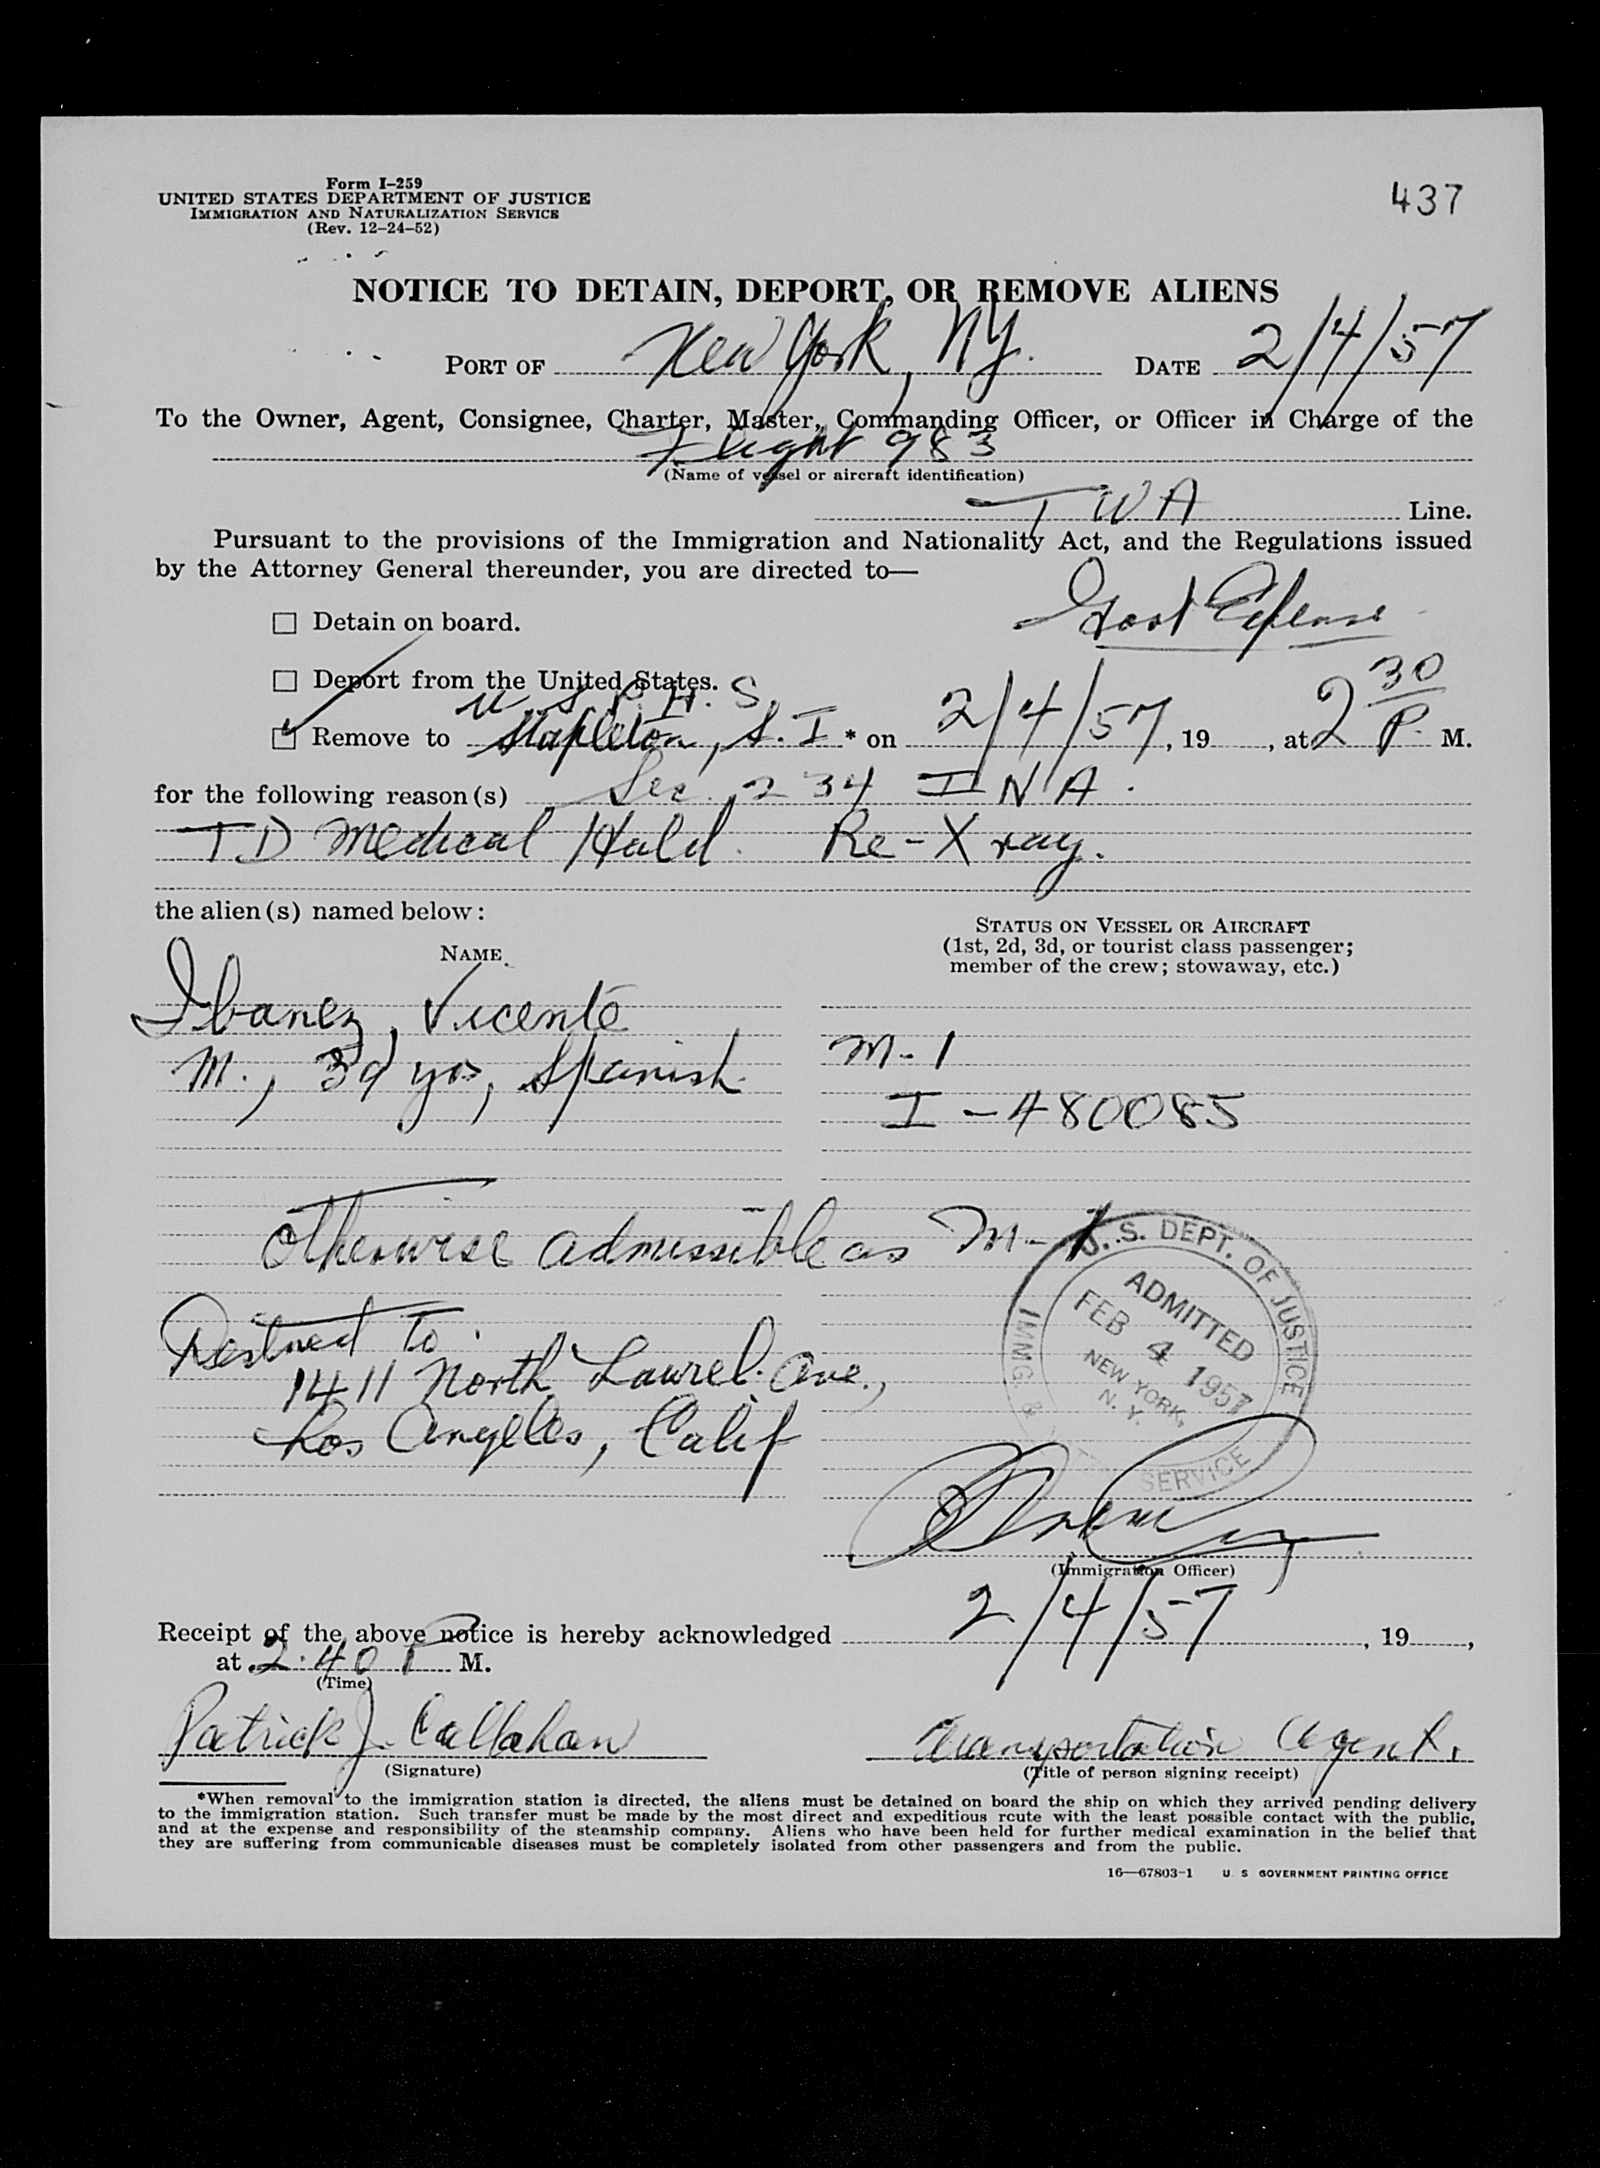 Form I-259
UNITED STATES DEPARTMENT OF JUSTICE
IMMIGRATION AND NATURALIZATION SERVICE
(Rev. 12-24-52)
437
NOTICE TO DETAIN, DEPORT, OR REMOVE ALIENS
PORT OF New York, NY. DATE 2/4/57
To the Owner, Agent, Consignee, Charter, Master, Commanding Officer, or Officer in Charge of the
Flight 983
(Name of vessel or aircraft identification)
TWA Line.
Pursuant to the provisions of the Immigration and Nationality Act, and the Regulations issued
by the Attorney General thereunder, you are directed to—
☐ Detain on board.
☐ Deport from the United States.
U. S. P. H. S.
☑ Remove to Stapleton, S. I * on 2/4/57, 19 , at 2 30 P. M.
for the following reason(s) Sec. 234 INA.
TD Medical Hold. Re-Xray.
the alien(s) named below:
NAME
STATUS ON VESSEL OR AIRCRAFT
(1st, 2d, 3d, or tourist class passenger;
member of the crew; stowaway, etc.)
Ibanez, Vicente
M., 39 yrs, Spanish
M-1
I-480085
Otherwise admissible as M-1
Destined to
1411 North Laurel Ave.,
Los Angeles, Calif
U. S. DEPT. OF JUSTICE
ADMITTED
FEB 4 1957
NEW YORK,
N. Y.
IMMG. & SERVICE
(Immigration Officer)
Receipt of the above notice is hereby acknowledged 2/4/57, 19 ,
at 2:40 P M.
(Time)
Patrick J. Callahan
(Signature)
Transportation Agent.
(Title of person signing receipt)
*When removal to the immigration station is directed, the aliens must be detained on board the ship on which they arrived pending delivery
to the immigration station. Such transfer must be made by the most direct and expeditious route with the least possible contact with the public,
and at the expense and responsibility of the steamship company. Aliens who have been held for further medical examination in the belief that
they are suffering from communicable diseases must be completely isolated from other passengers and from the public.
16—67803-1 U. S. GOVERNMENT PRINTING OFFICE